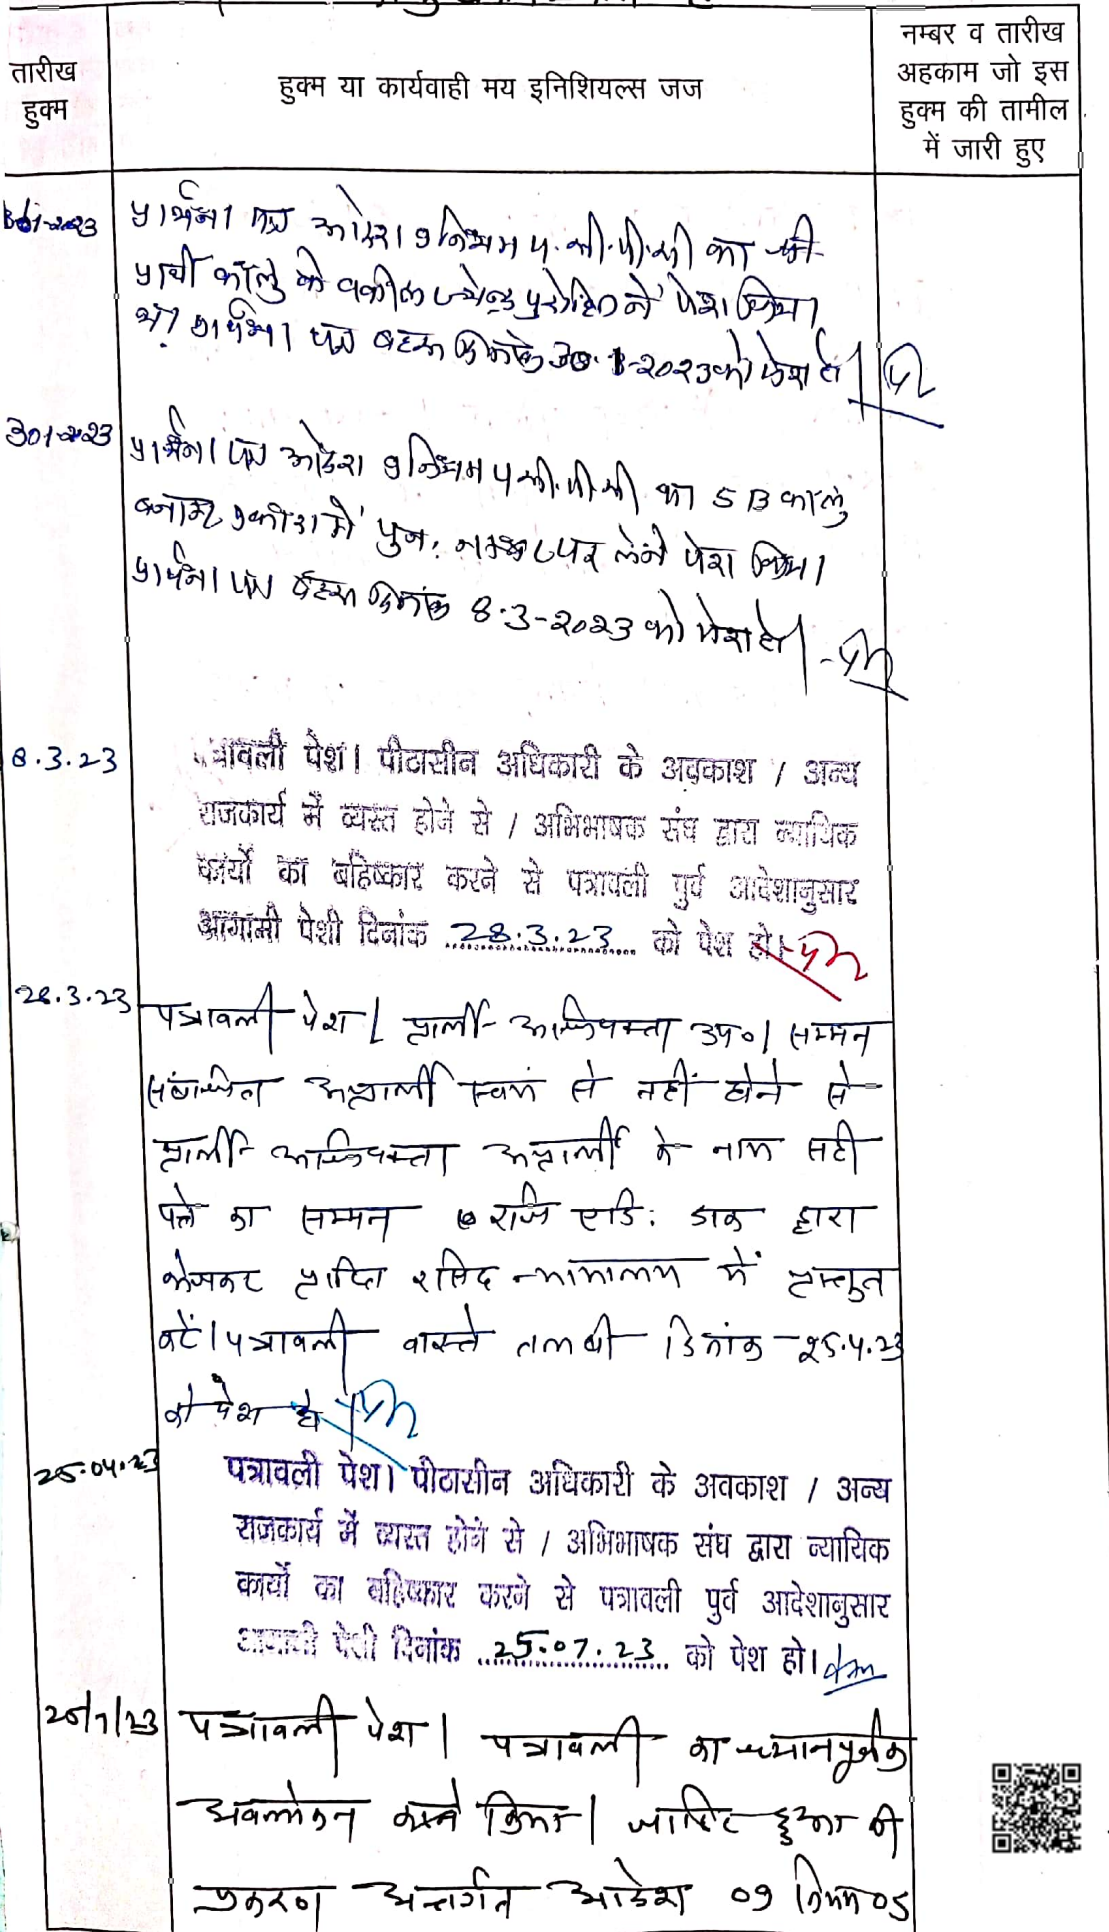 तारीख
हुक्म
हुक्म या कार्यवाही मय इनिशियल्स जज
नम्बर व तारीख
अहकाम जो इस
हुक्म की तामील
में जारी हुए
प्रार्थना पत्र आदेश 9 नियम 4 सी.पी.सी का
प्रार्थी कालु के वकील पुरोहित ने पेश किया।
प्रार्थना पत्र बहस दिनांक 30.1-2023 को पेश हो।
प्रार्थना पत्र आदेश 9 नियम 4 सी.पी.सी का SB कालु
बनाम प्रकाश में पुनः नम्बर पर लेने पेश किया।
प्रार्थना पत्र बहस दिनांक 8.3-2023 को पेश हो।
8.3.23
पत्रावली पेश। पीठासीन अधिकारी के अवकाश / अन्य
राजकार्य में व्यस्त होने से / अभिभाषक संघ द्वारा न्यायिक
कार्यों का बहिष्कार करने से पत्रावली पुर्व आदेशानुसार
आगामी पेशी दिनांक 28.3.23 को पेश हो।
28.3.23
पत्रावली पेश। प्रार्थी अधिवक्ता उप०। सम्मन
संबंधित अप्रार्थी स्वयं से नहीं होने से
प्रार्थी अधिवक्ता अप्रार्थी के नाम सही
पते का सम्मन रजि एडि: डाक द्वारा
भेजकर प्राप्ति रसिद न्यायालय में प्रस्तुत
करें। पत्रावली वास्ते तलबी दिनांक 25.4.23
को पेश हो
25.04.23
पत्रावली पेश। पीठासीन अधिकारी के अवकाश / अन्य
राजकार्य में व्यस्त होने से / अभिभाषक संघ द्वारा न्यायिक
कार्यों का बहिष्कार करने से पत्रावली पुर्व आदेशानुसार
आगामी पेशी दिनांक 25.07.23 को पेश हो।
25/7/23
पत्रावली पेश। पत्रावली का ध्यानपूर्वक
अवलोकन किया। जाहिर हुआ की
प्रकरण अन्तर्गत आदेश 09 नियम 05